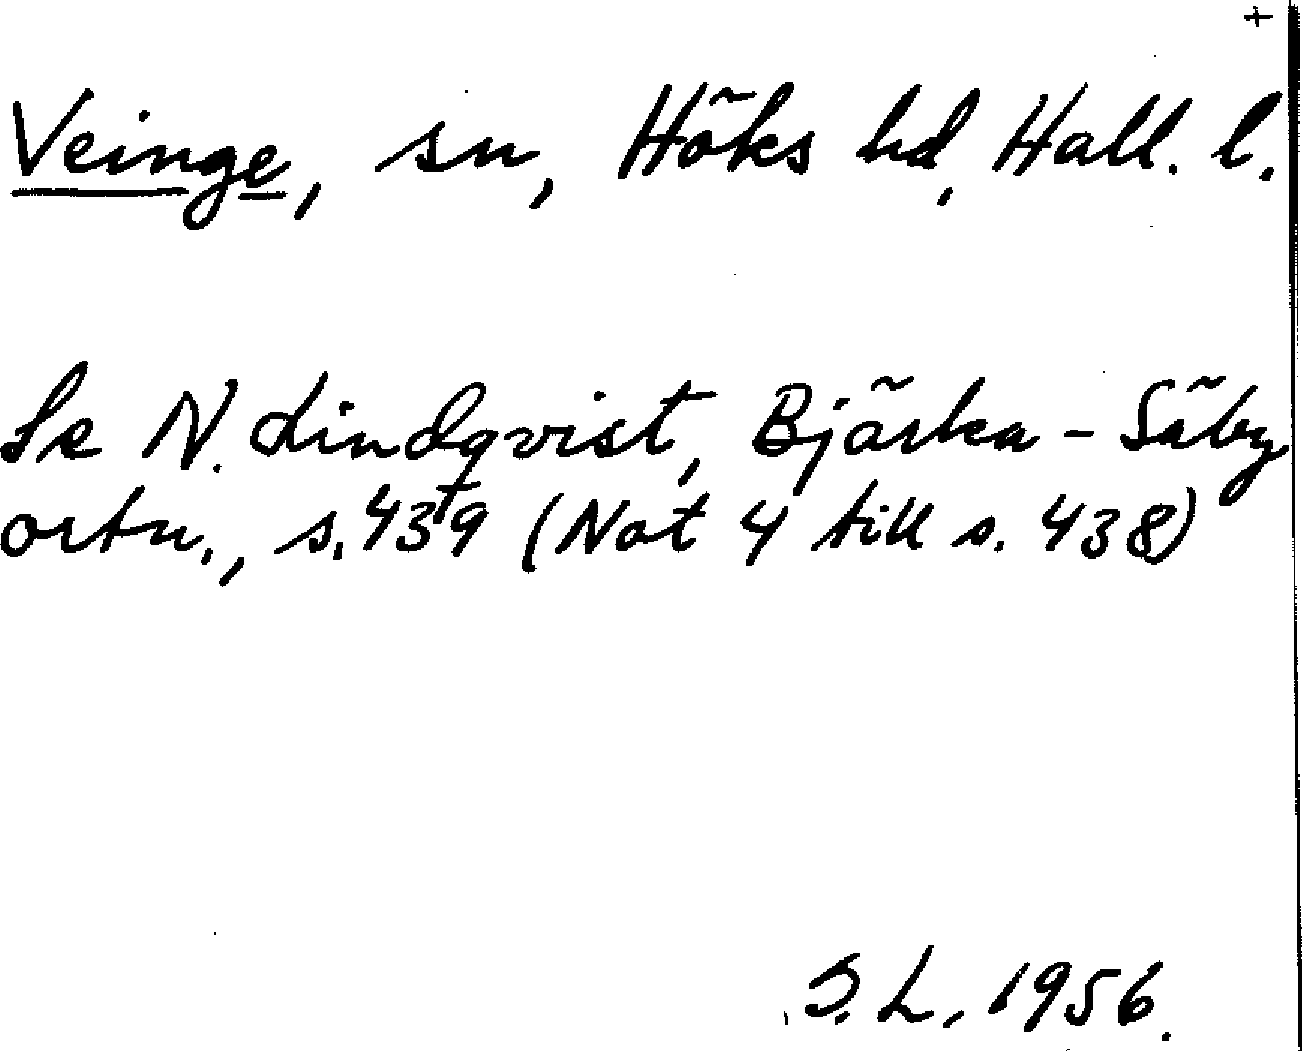 +
Veinge, sn, Höks hd, Hall. l.
Se N. Lindqvist, Bjärka-Säby
ortn., s. 439 (Not 4 till s. 438)
S. L. 1956.